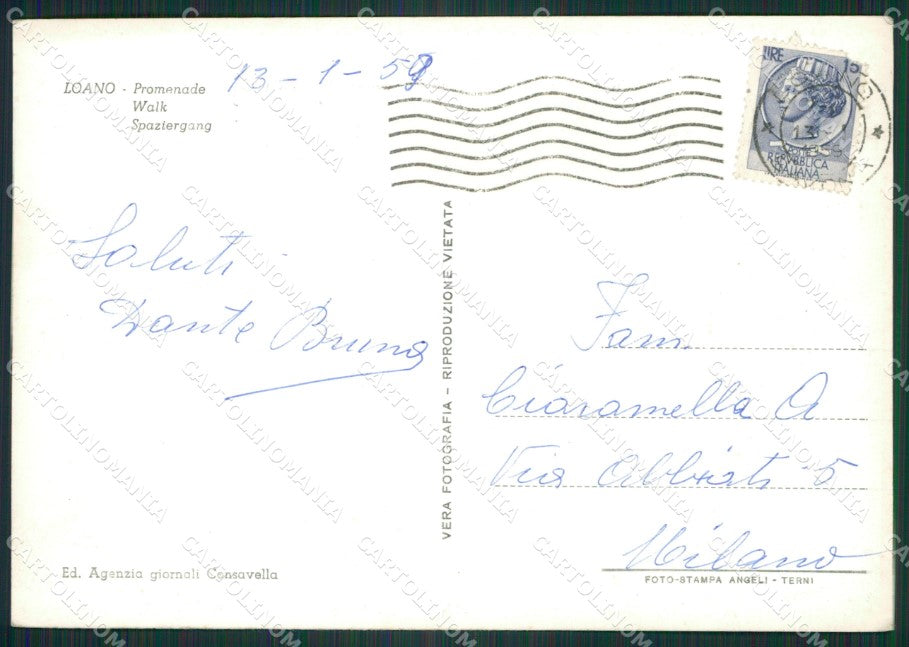 LOANO - Promenade
Walk
Spaziergang
13-1-59
LIRE 15
REPVBBLICA
ITALIANA
Saluti
Dante Bruna
VERA FOTOGRAFIA - RIPRODUZIONE VIETATA
Fam.
Ciaramella A
Via Abbiati 5
Milano
FOTO-STAMPA ANGELI - TERNI
Ed. Agenzia giornali Consavella
CARTOLINOMANIA